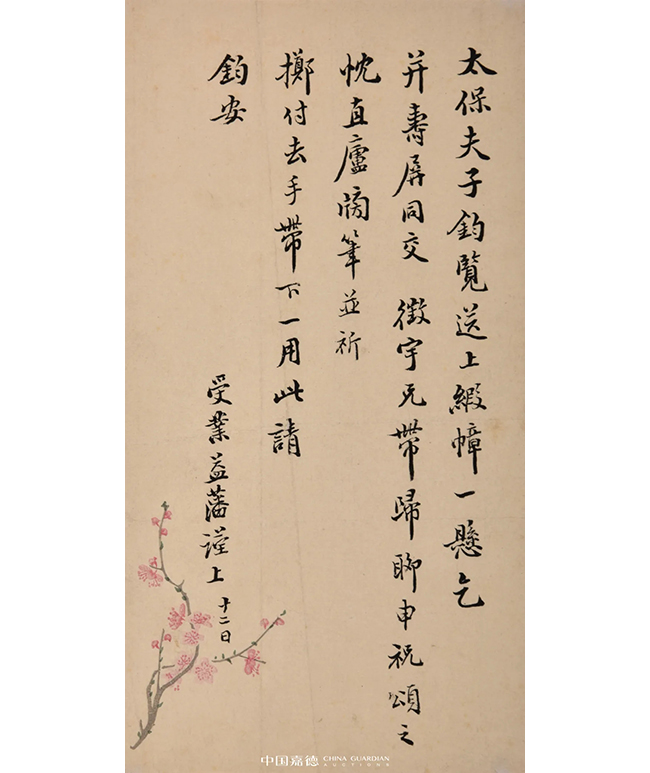 太保夫子鈞覽送上緞幛一懸乞
并壽屏同交　徵宇兄帶歸聊申祝頌之
忱直廬筆並祈
擲付去手帶下一用此請
鈞安
受業益藩謹上 十二日
中国嘉德 CHINA GUARDIAN
AUCTIONS